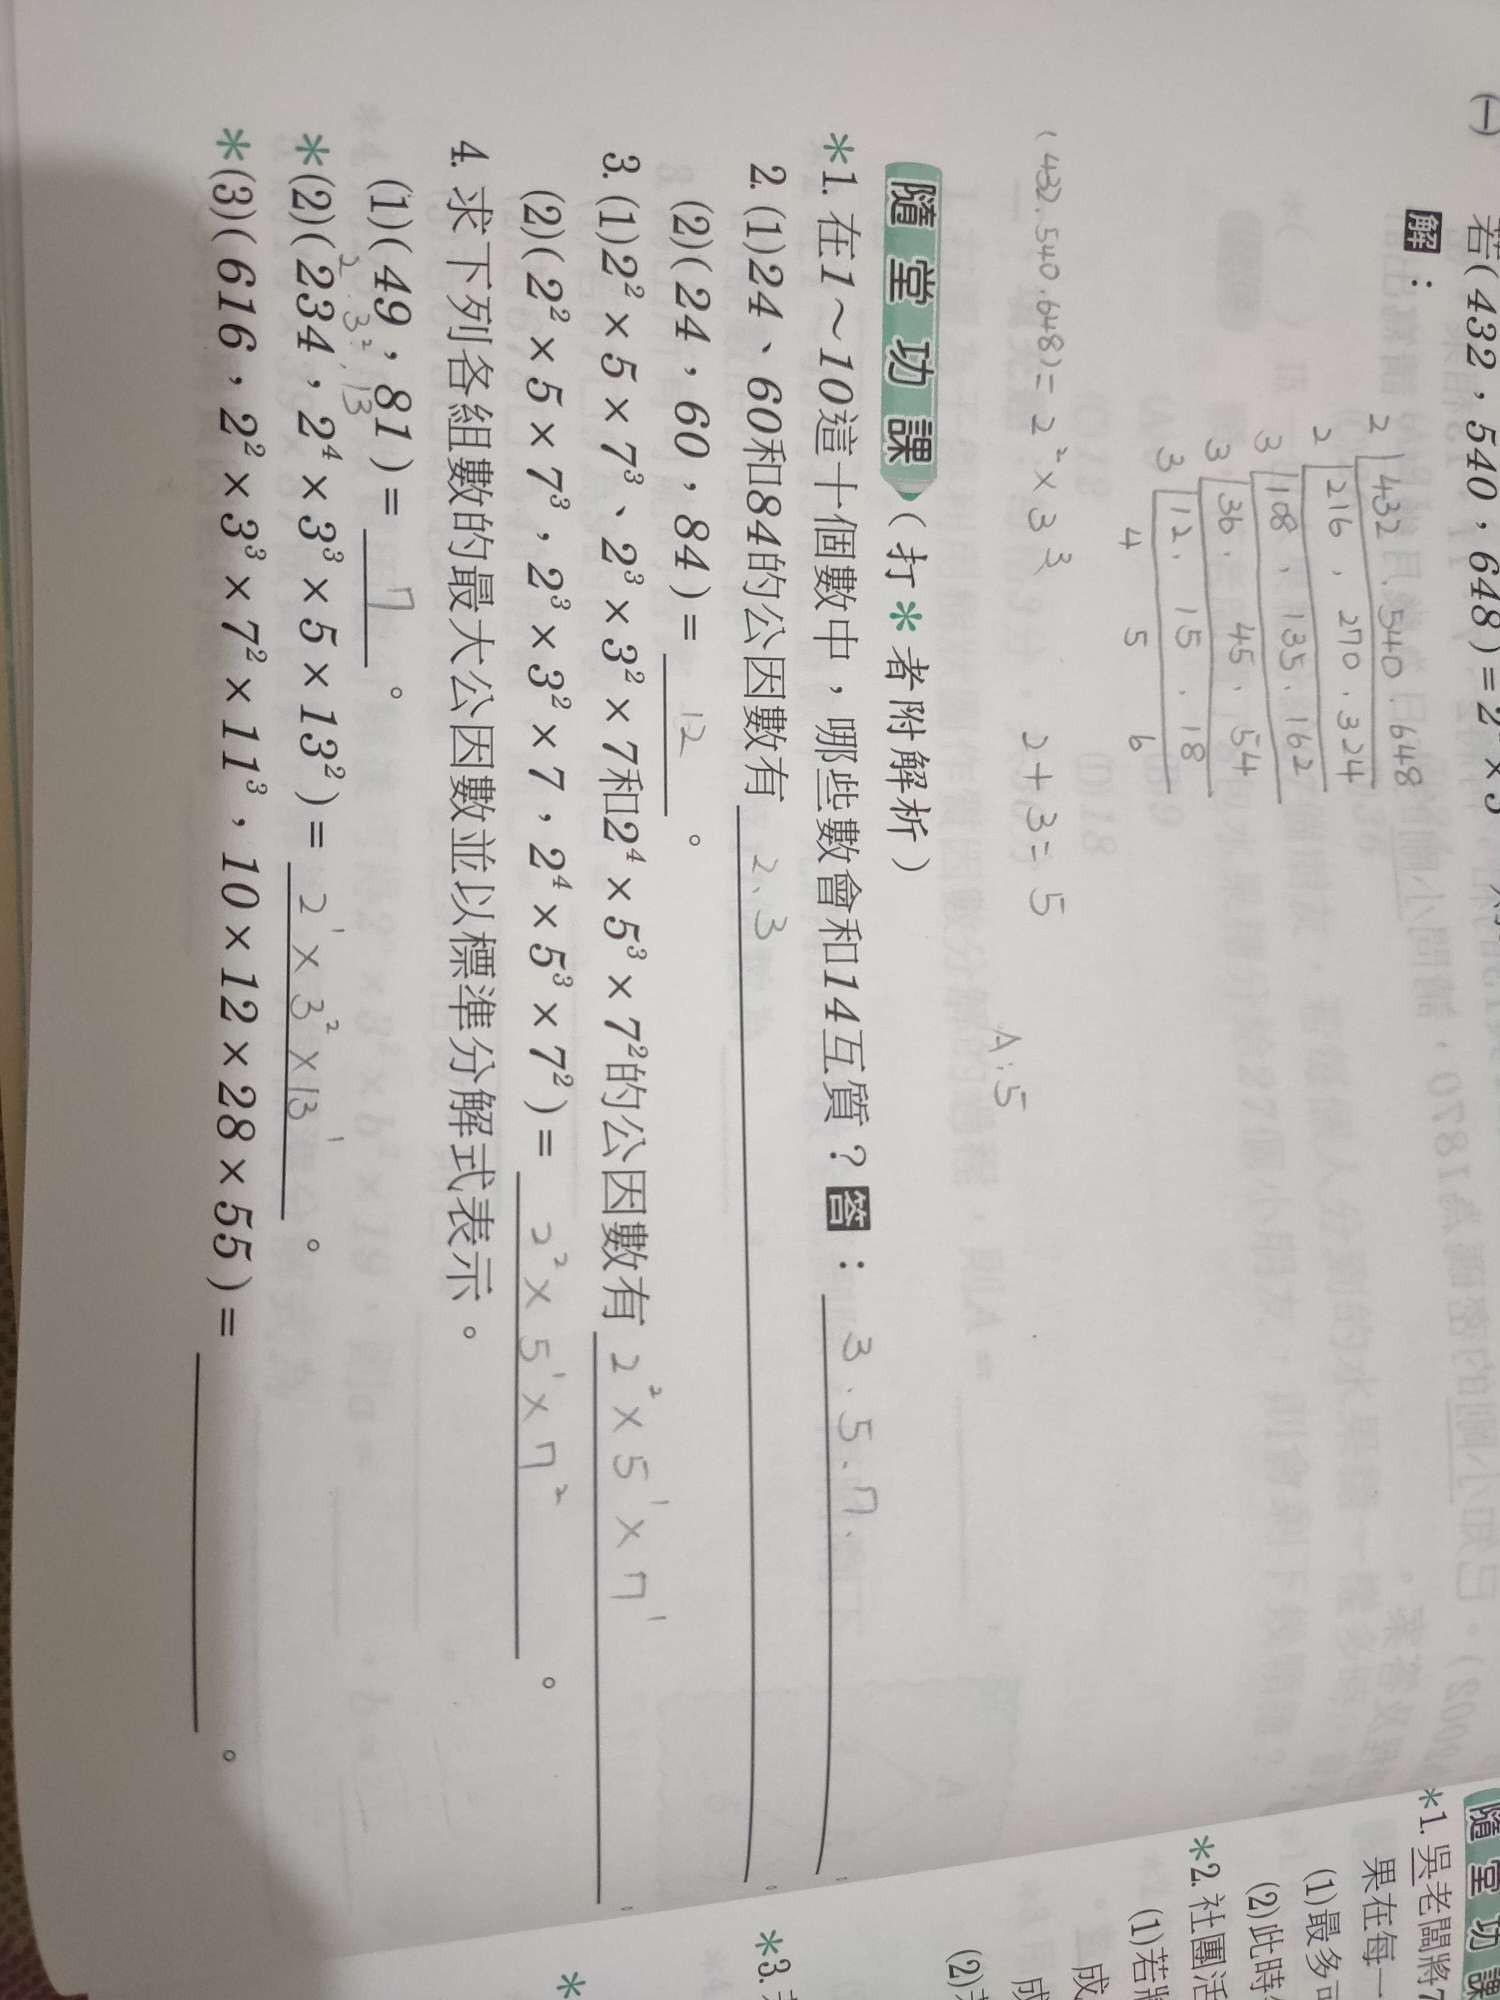 (一) 若(432，540，648)=2 ×3
解：
2 432.540.648
2 216.270.324
3 108.135.162
3 36.45.54
3 12.15.18
4 5 6
(432.540.648)=2²×3³ 2+3=5
A:5
隨堂功課(打*者附解析)
*1. 在1~10這十個數中，哪些數會和14互質？答：3.5.7.
2. (1)24、60和84的公因數有 2、3
(2)(24，60，84)= 12 。
3. (1)2²×5×7³、2³×3²×7和2⁴×5³×7²的公因數有 2²×5¹×7¹
(2)(2²×5×7³，2³×3²×7，2⁴×5³×7²)= 2²×5¹×7² 。
4. 求下列各組數的最大公因數並以標準分解式表示。
(1)(49，81)= 7 。
2.3².13
*(2)(234，2⁴×3³×5×13²)= 2¹×3²×13¹ 。
*(3)(616，2²×3³×7²×11³，10×12×28×55)= 。
隨堂功課
*1. 吳老闆將7
果在每一
(1)最多可
(2)此時
*2. 社團活
(1)若將
成
成
(2)
*3.
*